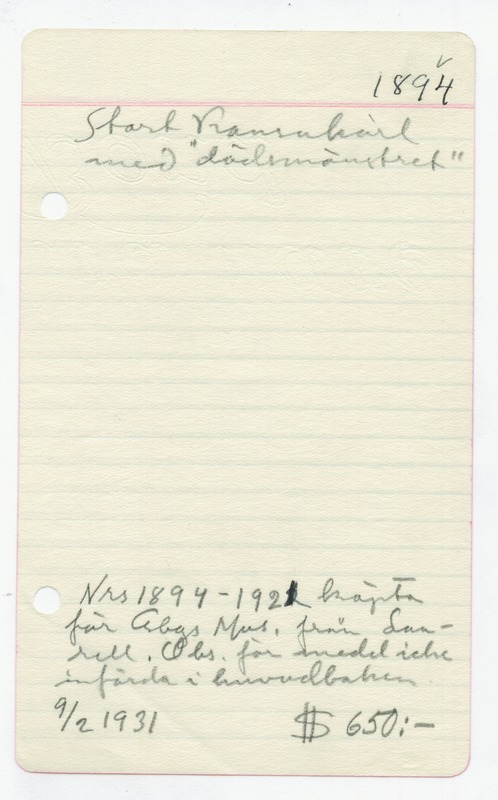 1894
Stort Kansukärl
med "dödsmönstret"
Nrs 1894-1921 köpta
för Gbgs Mus. från Lau-
rell. Obs. för medel icke
införda i huvudboken.
9/2 1931 $ 650:-